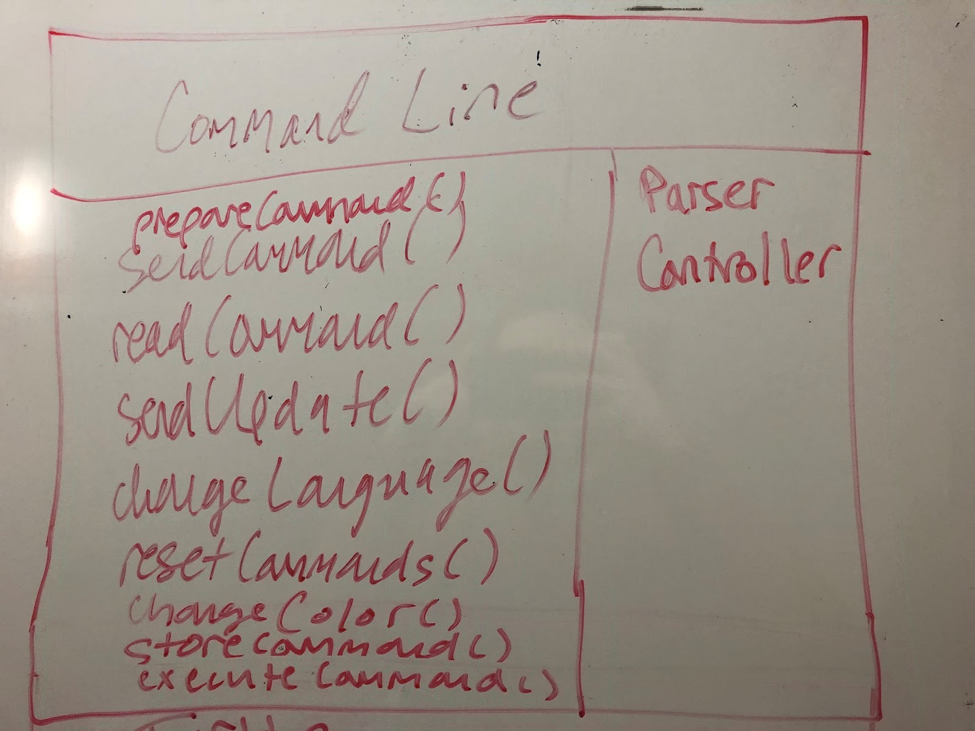 Command Line
prepareCommand()
sendCommand()
readCommand()
sendUpdate()
changeLanguage()
resetCommands()
changeColor()
storeCommand()
executeCommand()
Parser
Controller